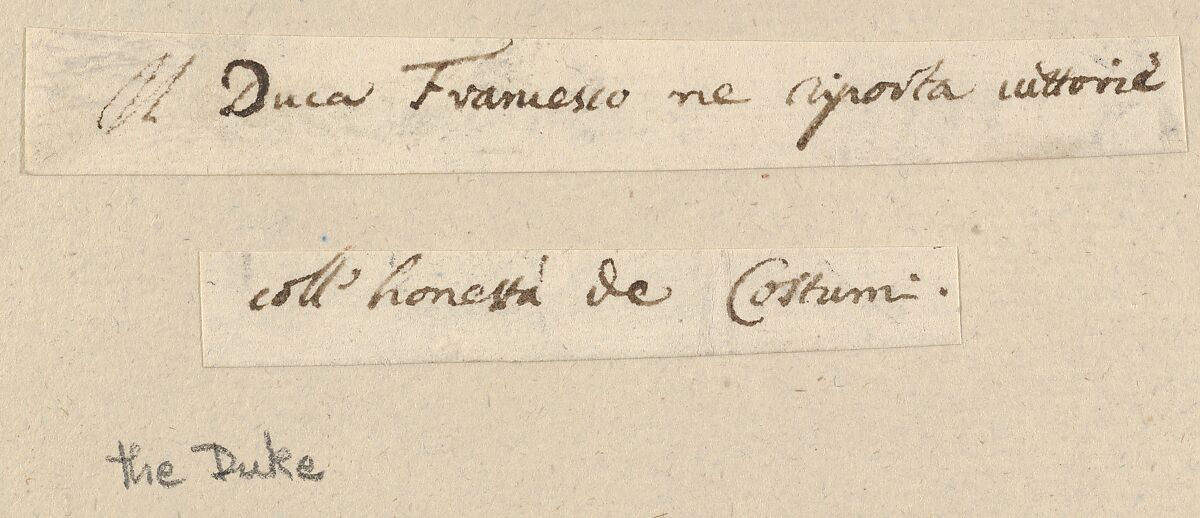 Il Duca Francesco ne riporta vittorie
coll' honestà de Costumi.
the Duke